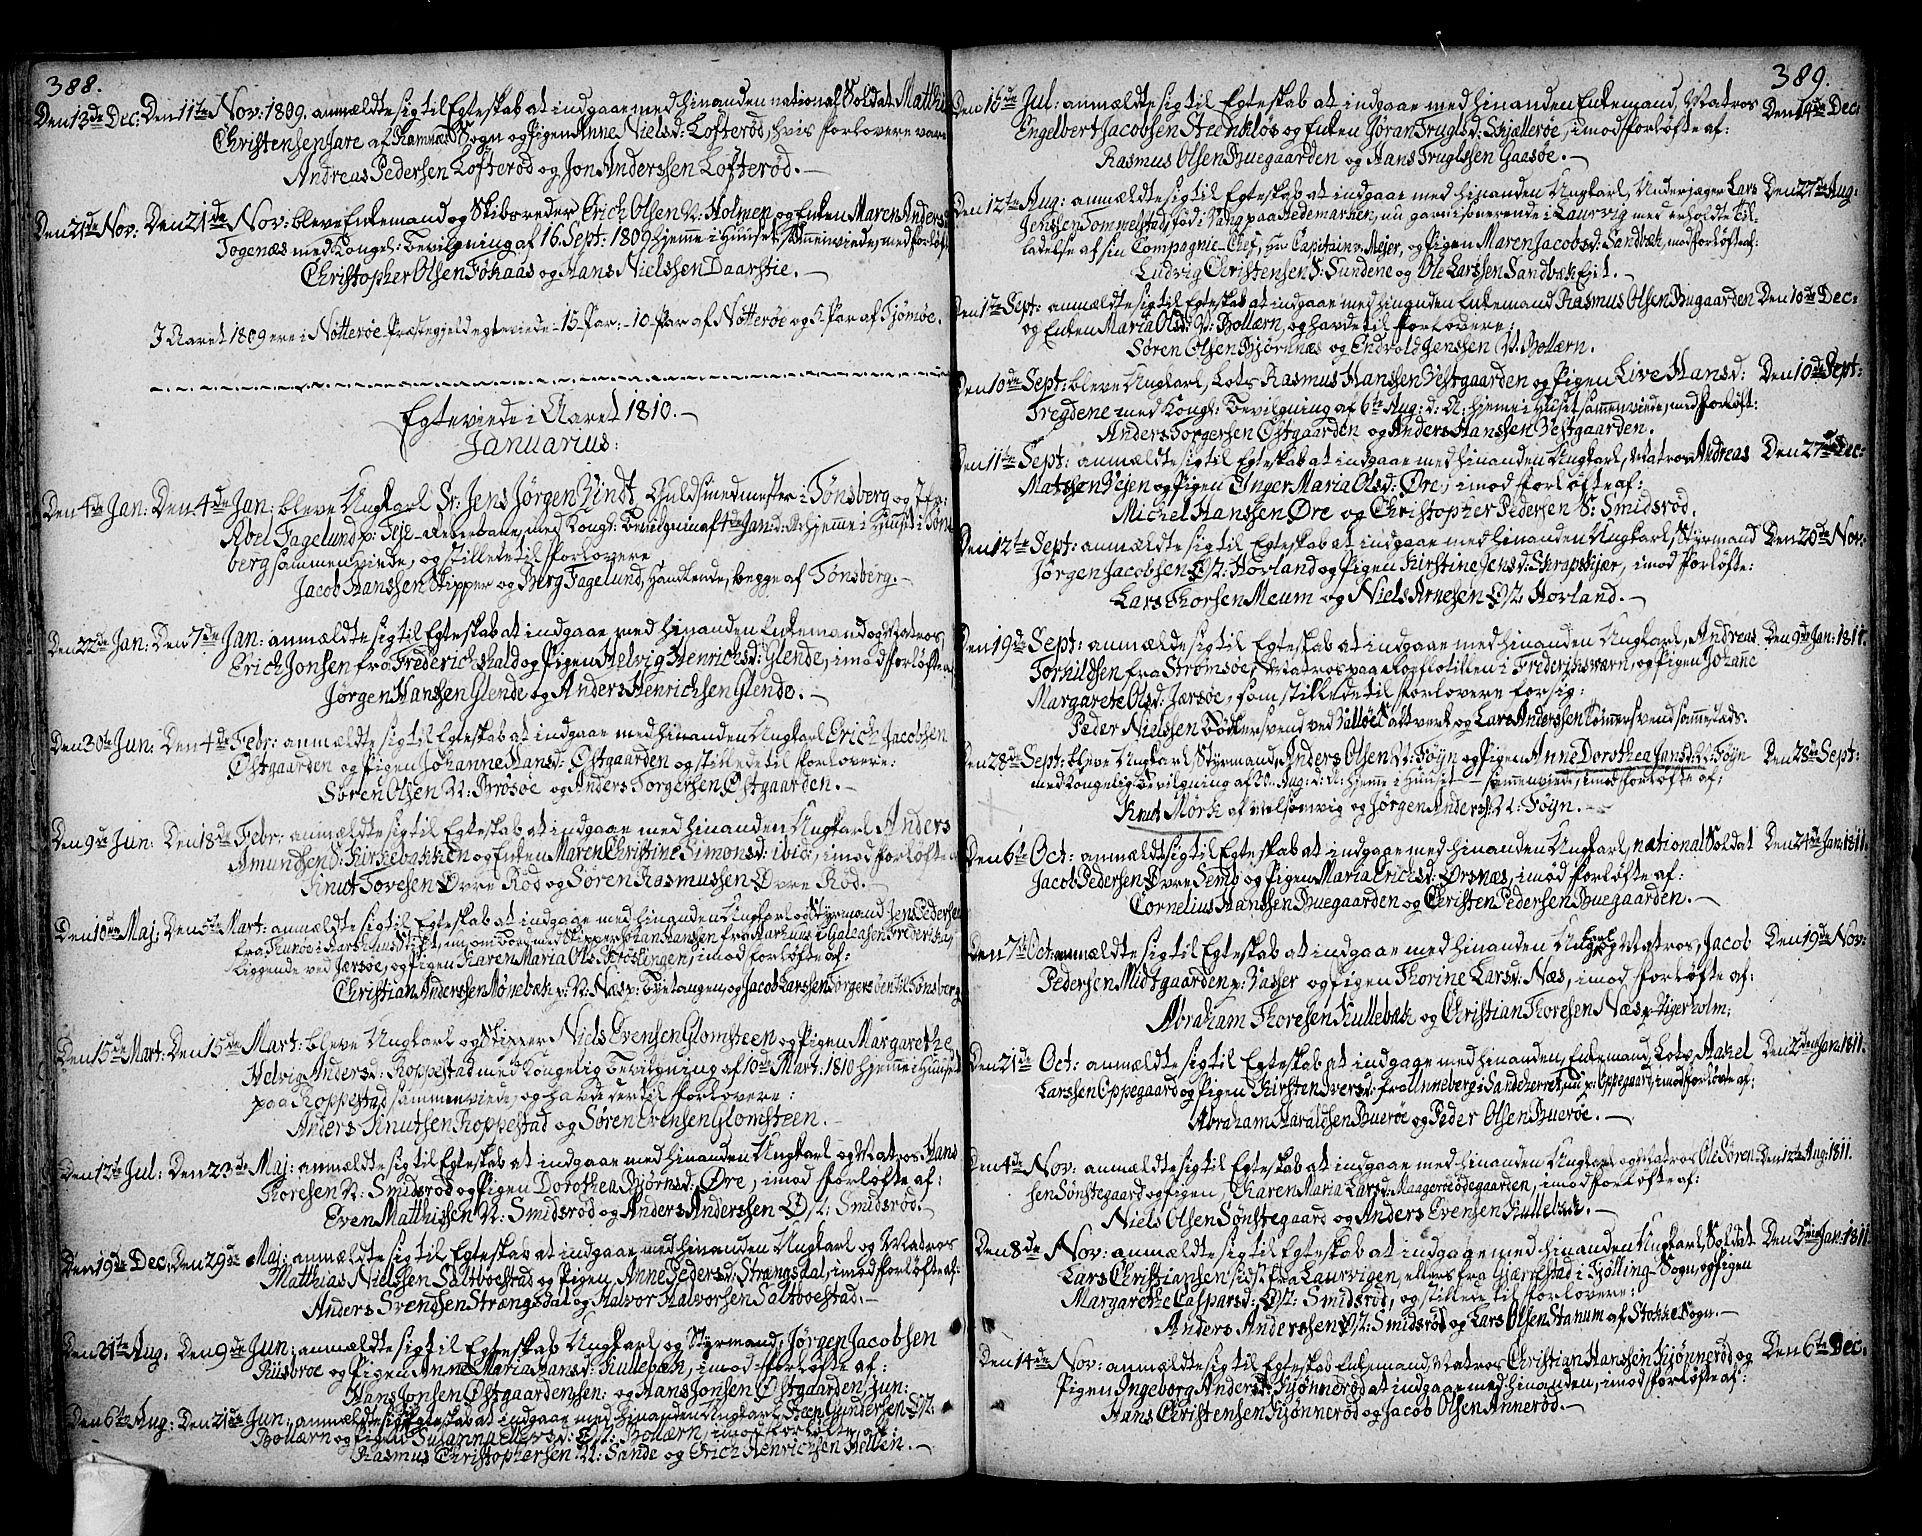 388.
Den 13de Dec: Den 11te Nov: 1809. anmældte sig til Egteskab at indgaae med hinanden national Soldat Matthi
Christensen Jare af Ramnæs Sogn og Pigen Anne Nielsd: Lofterød, hvis forlovere vare
Andreas Pedersen Lofterød og Jon Anderssen Lofterød. —
Den 21de Nov: Den 21de Nov: bleve Enkemand og Skibsreder Erich Olsen N: Holmen og Enken Maren Anders
Togenæs med Kongel: Bevilgning af 16. Sept: 1809 hjemme i Huuset sammenviede, med forløft
Christopher Olsen Føkaas og Hans Nielssen Daarstie. —
I Aaret 1809 ere i Nøtterøe Præstegjeld egteviede - 15 - Par: - 10 - Par af Nøtterøe og 5 - Par af Tjømøe.
Egteviede i Aaret 1810. —
Januarius:
Den 4de Jan: Den 4de Jan: bleve Ungkarl Sr: Jens Jørgen Vindt, Guldsmedmester i Tønsberg og Jfr:
Abel Fagelund p: Teje med Kongl: Bevilgning af 4de Jan: d: A: hjemme i Huuset i Tøns
berg sammenviede, og stillede til forlovere
Jacob Hanssen Skipper og Berg Fagelund, Handlende, begge af Tønsberg. —
Den 22de Jan: Den 7de Jan: anmældte sig til Egteskab at indgaae med hinanden Enkemand og Matros,
Erich Jonsen fra Frederichshald og Pigen Helvig Henrichsd: Glende, imod forløfte a
Jørgen Hanssen Glende og Anders Henrichsen Glende. —
Den 30te Jun: Den 4de Febr: anmældte sig til Egteskab at indgaae med hinanden Ungkarl Erich Jacobsen
Østgaarden og Pigen Johanne Hansd: Østgaarden og stillede til forlovere:
Søren Olsen N: Brøsøe og Anders Torgersen Østgaarden. —
Den 9de Jun: Den 18de Febr: anmældte sig til Egteskab at indgaae med hinanden Ungkarl Anders
Amundsen S: Kirkebakken og Enken Maren Christine Simonsd: ibid:, imod forløfte a
Knut Tovesen Øvre Rød og Søren Rasmussen Øvre Rød. —
Den 10de Maj: Den 5te Mart: anmældte sig til Egteskab at indgaae med hinanden Ungkarl og Styrmand Jens Pedersen
fra Thunøe i Aarhuus Stift, nu om bord med Skipper Johan Hansen fra Aarhuus i Galeasen Frederikay
liggende ved Jærsøe, og Pigen Karen Maria Olsd: Brøtsingen, imod forløfte af:
Christian Anderssen Mønebæk p: N: Næs p: Tyetangen og Jacob Larssen Torgersøen til Tønsberg
Den 15de Mart: Den 15de Mart: bleve Ungkarl og Skipper Niels Evensen Glomsteen og Pigen Margarethe
Helvig Andersd: Roppestad med Kongelig Bevilgning af 10de Mart: 1810 hjemme i Huuset
paa Roppestad sammenviede, og havde der til forlovere:
Anders Knutsen Roppestad og Søren Evensen Glomsteen.
Den 12te Jul: Den 23de Maj: anmældte sig til Egteskab at indgaae med hinanden Ungkarl og Matros Hans
Thoresen N: Smidsrød og Pigen Dorothea Bjørnsd: Øre, imod forløfte af:
Even Matthissen N: Smidsrød og Anders Anderssen Ø/2: Smidsrød. —
Den 19de Dec: Den 29de Maj: anmældte sig til Egteskab at indgaae med hinanden Ungkarl og Matros
Matthias Nielssen Saltboestad og Pigen Anne Pedersd: Strængsdal, imod forløfte af:
Anders Svendsen Strængsdal og Halvor Halvorsen Saltboestad. —
Den 21te Aug: Den 9de Jun: anmældte sig til Egteskab Ungkarl og Styrmand, Jørgen Jacobsen
Riisbroe og Pigen Anne Maria Hansd: Kullebæk, imod forløfte af:
Hans Jonsen Østgaarden sen: og Hans Jonsen Østgaarden, jun:
Den 6te Aug: Den 21de Jun: anmældte sig til Egteskab at indgaae med hinanden Ungkarl Gundersen Ø/2:
Bollærn og Pigen Susanna Ø/2: Bollærn, imod forløfte af:
Rasmus Christophersen N: Sande og Erich Henrichsen Hellen. —
389.
Den 16de Jul: anmældte sig til Egteskab at indgaae med hinanden Enkemand, Matros Den 14de Dec:
Engelbert Jacobsen Steenkløs og Enken Jøran Truglsd: Skjællerøe, imod forløfte af:
Rasmus Olsen Buegaarden og Hans Truglssen Gaasøe. —
Den 12te Aug: anmældte sig til Egteskab at indgaae med hinanden Ungkarl, Underjæger Lars Den 27de Aug:
Jenssen Tommelstad, fød i Vang paa Hedemarken, nu garnisonerende i Laurvig med erholdte Til-
ladelse af sin Compagnie-Chef, Hr: Capitain v: Mejer, og Pigen Maren Jacobsd: Sandbæk, imod forløfte af:
Ludvig Christensen S: Sundene og Ole Larssen Sandbæk Eid. —
Den 1te Sept: anmældte sig til Egteskab at indgaae med hinanden Enkemand Rasmus Olsen Bugaarden Den 10de Dec:
og Enken Maria Olsd: N: Bollærn, og havde til forlovere:
Søren Olsen Bjørnnæs og Endvold Jenssen N. Bollærn.
Den 10de Sept: bleve Ungkarl, Lots Rasmus Hanssen Vestgaarden og Pigen Live Hansd: Den 10de Sept:
Tregdene med Kongl: Bevilgning af 6te Aug: d: A: hjemme i Huuset sammenviede, med forløft:
Anders Torgersen Østgaarden og Anders Hanssen Vestgaarden.
Den 11te Sept: anmældte sig til Egteskab at indgaae med hinanden Ungkarl, Matros Andreas Den 27de Dec:
Matssøn Vejen og Pigen Inger Maria Olsd: Øre, imod forløfte af:
Michel Hanssen Øre og Christopher Pedersen S: Smidsrød.
Den 12te Sept: anmældte sig til Egteskab at indgaae med hinanden Ungkarl, Styrmand Den 20de Nov:
Jørgen Jacobsen Ø/2: Hovland og Pigen Kirstine Jensd: Skrapskjær, imod forløfte:
Lars Thorsen Meum og Niels Arnesen Ø/2: Hovland. —
Den 19de Sept: anmældte sig til Egteskab at indgaae med hinanden Ungkarl, Andreas Den 9de Jan: 1811.
Torkildsen fra Strømsøe, Matros paa Roeflotillen i Frederiksværn, og Pigen Johanne
Margarete Olsd: Jærsøe, som stillede til forlovere for sig:
Peder Nielssen Bødkersvend ved Valløe Saltverk og Lars Anderssen Tømmersvend sammestads.
Den 28de Sept: bleve Ungkarl, Styrmand, Anders Olsen N: Føyn og Pigen Anne Dorothea Jansd: N: Føyn Den 28de Sept:
med Kongelig Bevilgning af 20. Aug: d: A: hjemme i Huuset — sammenviede, imod forløfte af:
Knut Mørk af Melsomvig og Jørgen Anderss: N: Føyn. —
Den 6te Oct: anmældte sig til Egteskab at indgaae med hinanden Ungkarl, national Soldat Den 21de Jan: 1811.
Jacob Pedersen Øvre Semb og Pigen Maria Erichsd: Ørsnæs, imod forløfte af:
Cornelius Hanssen Buegaarden og Christen Pedersen Buegaarden. —
Den 7de Oct: anmældte sig til Egteskab at indgaae med hinanden Ungkarl og Matros, Jacob Den 19de Nov:
Pedersen Midtgaarden p: Vasser og Pigen Thorine Larsd: Næs, imod forløfte af:
Abraham Thoresen Kullebæk og Christian Thoresen Næs p: Vejerholm;
Den 21de Oct: anmældte sig til Egteskab at indgage med hinanden, Enkemand, Lots, Aakel Den 2den Jan: 1811.
Larssen Oppegaard og Pigen Kirsten Iversd: fra Unneberg i Sandeherret, nu p: Oppegaard, imod forløfte af:
Abraham Haraldsen Buerøe og Peder Olsen Buerøe. —
Den 4de Nov: anmældte sig til Egteskab at indgaae med hinanden Ungkarl og Matros Ole Søren- Den 12te Aug: 1811.
sen Sønstegaard og Pigen, Karen Maria Larsd: Maagerøe ødegaarden, imod forløfte af:
Niels Olsen Sønstegaard og Anders Evensen Kullebæk. —
Den 8de Nov: anmældte sig til Egteskab at indgaae med hinanden Ungkarl, Soldat Den 3die Jan: 1811.
Lars Christiansen sidst fra Laurvigen, ellers fra Gjærrestad i Tjølling - Sogn, og Pigen
Margarethe Caspersd: Ø/2: Smidsrød, og stillede til forlovere:
Anders Anderssen Ø/2: Smidsrød og Lars Olsen Hanum af Stokke Sogn. —
Den 14de Nov: anmældte sig til Egteskab Enkemand, Matros Christian Hanssen Kjønnerød og Den 6te Dec.
Pigen Ingeborg Andersd: Kjønnerød at indgaae med hinanden, imod forløfte af:
Hans Christensen Kjønnerød og Jacob Olsen Annerød. —